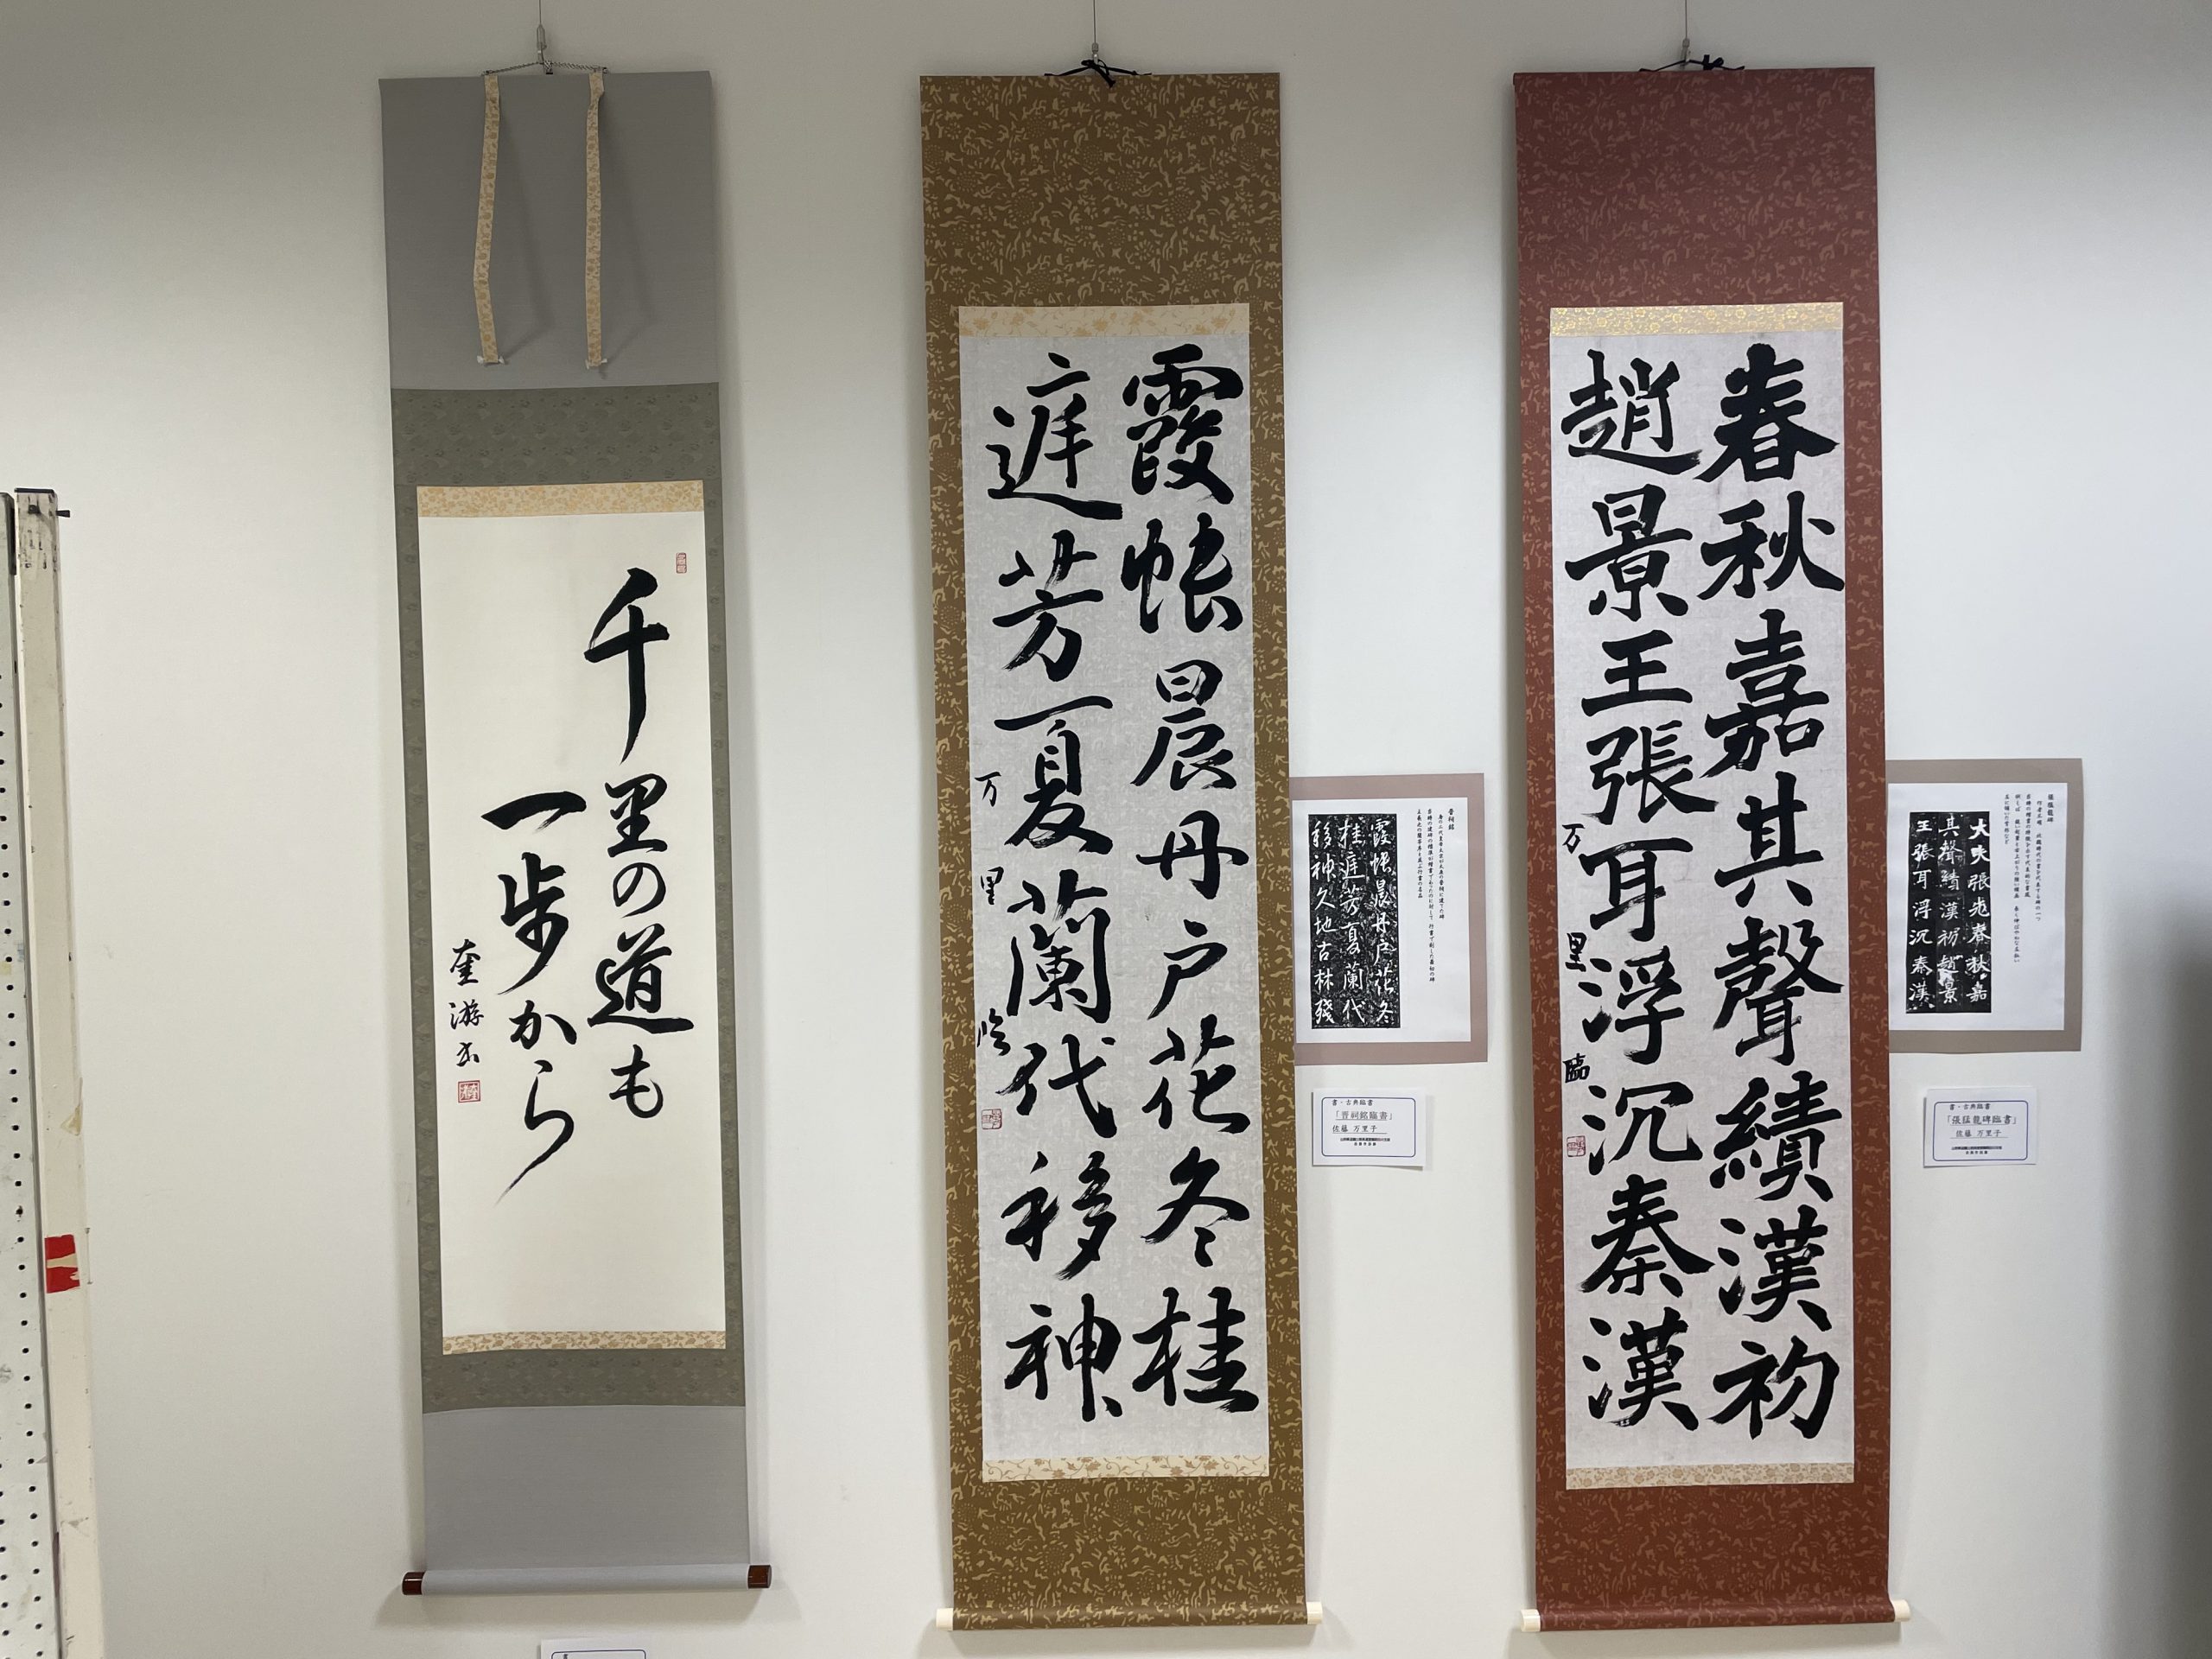 春秋嘉其聲績漢初
趙景王張耳浮沉秦漢
万里臨
張猛龍碑
大夫張老春秋嘉
其聲績漢初趙景
王張耳浮沉秦漢
書・古典臨書
「張猛龍碑臨書」
佐藤 万里子
霞帳晨丹戸花冬桂
遅芳夏蘭代移神
万里臨
晋祠銘
霞帳晨丹戸花冬
桂遅芳夏蘭代
移神久地古林殘
書・古典臨書
「晋祠銘臨書」
佐藤 万里子
千里の道も
一歩から
奎游書
書